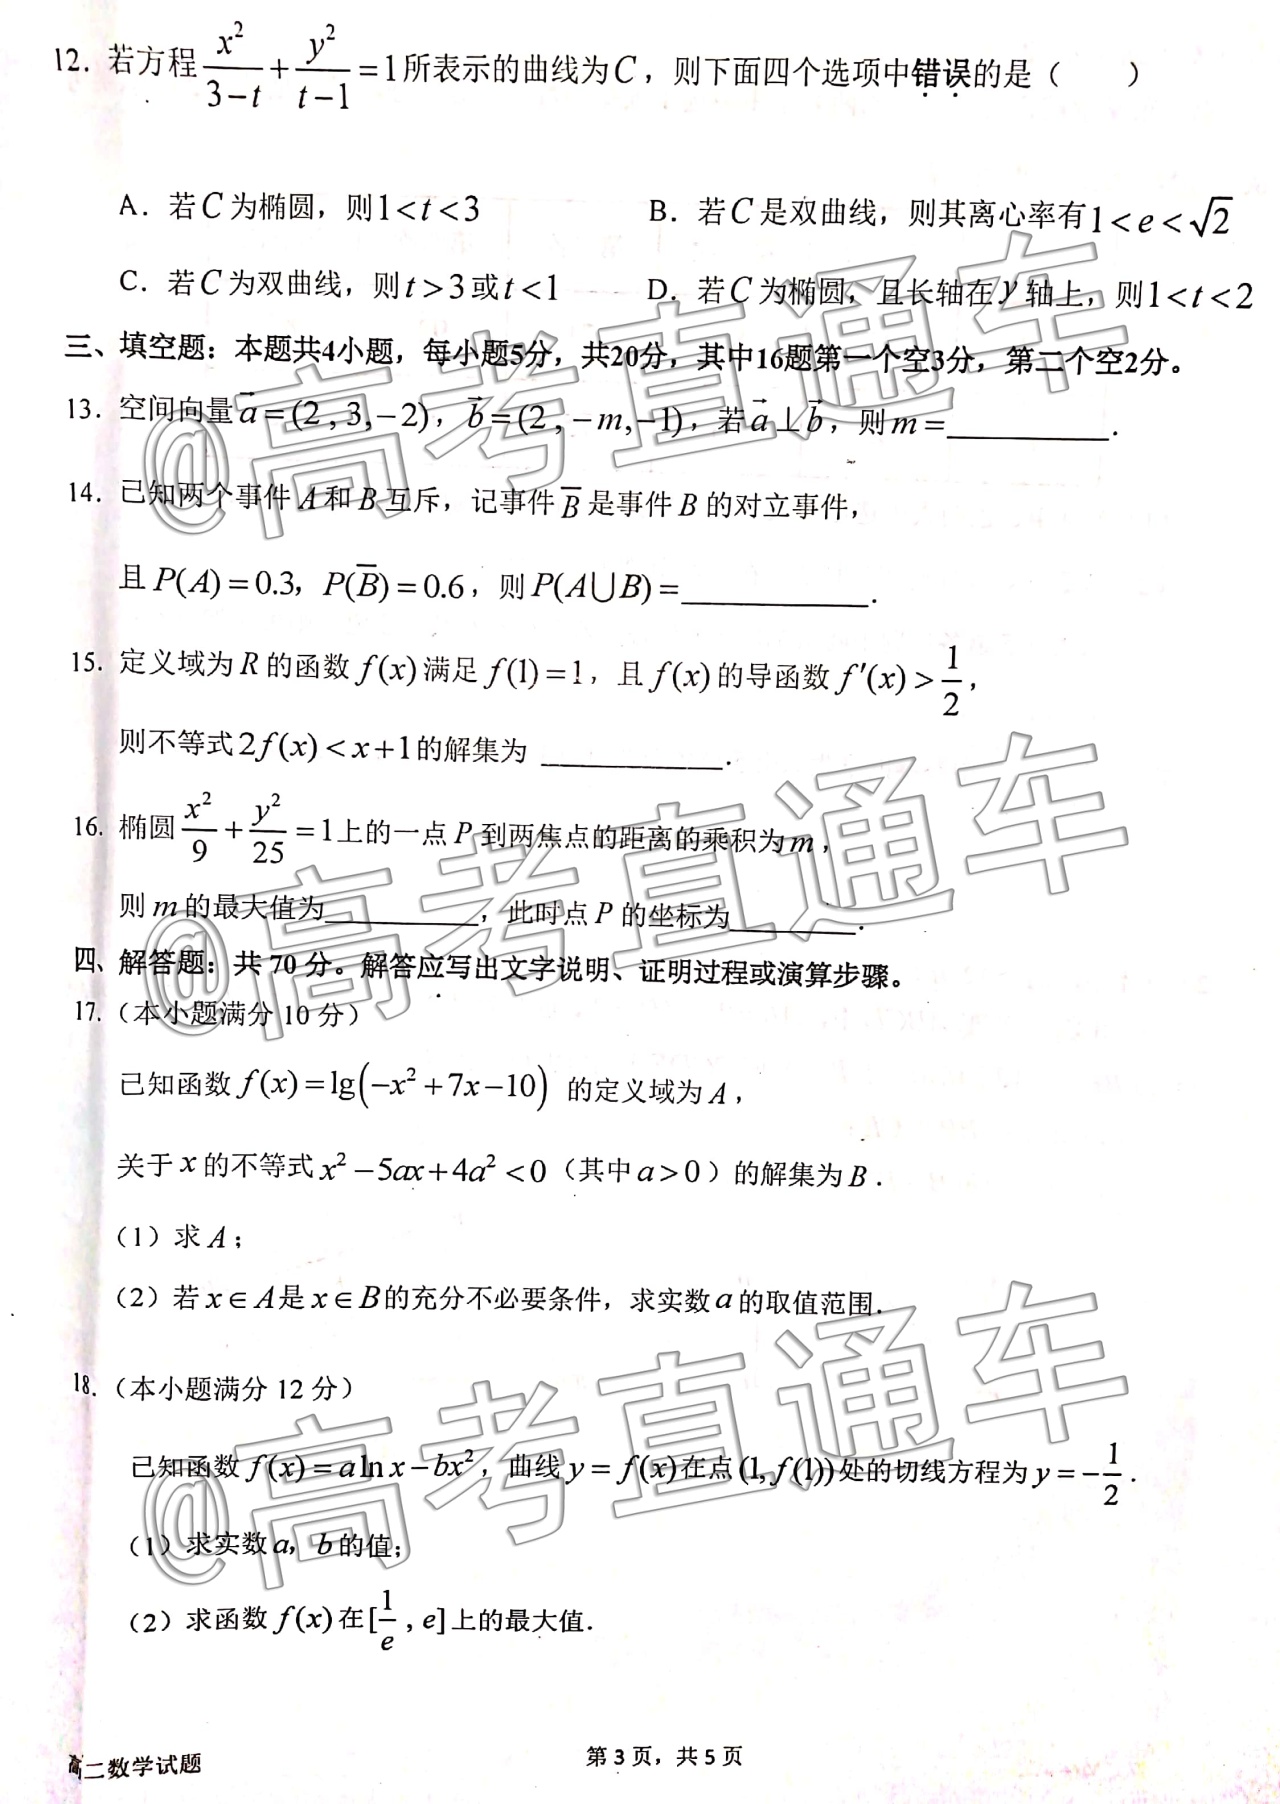 12. 若方程 x²/(3-t) + y²/(t-1) = 1所表示的曲线为C，则下面四个选项中错误的是（　　）
A. 若C为椭圆，则1<t<3　　B. 若C是双曲线，则其离心率有1<e<√2
C. 若C为双曲线，则t>3或t<1　　D. 若C为椭圆，且长轴在y轴上，则1<t<2
三、填空题：本题共4小题，每小题5分，共20分，其中16题第一个空3分，第二个空2分。
13. 空间向量a⃗=(2,3,-2)，b⃗=(2,-m,-1)，若a⃗⊥b⃗，则m=________.
14. 已知两个事件A和B互斥，记事件B̅是事件B的对立事件，
且P(A)=0.3，P(B̅)=0.6，则P(A∪B)=________.
15. 定义域为R的函数f(x)满足f(1)=1，且f(x)的导函数f′(x)>1/2，
则不等式2f(x)<x+1的解集为________.
16. 椭圆x²/9+y²/25=1上的一点P到两焦点的距离的乘积为m，
则m的最大值为________，此时点P的坐标为________.
四、解答题：共70分。解答应写出文字说明、证明过程或演算步骤。
17.（本小题满分10分）
已知函数f(x)=lg(-x²+7x-10)的定义域为A，
关于x的不等式x²-5ax+4a²<0（其中a>0）的解集为B.
（1）求A；
（2）若x∈A是x∈B的充分不必要条件，求实数a的取值范围.
18.（本小题满分12分）
已知函数f(x)=alnx-bx²，曲线y=f(x)在点(1,f(1))处的切线方程为y=-1/2.
（1）求实数a，b的值；
（2）求函数f(x)在[1/e,e]上的最大值.
高二数学试题　　第3页，共5页
@高考直通车
@高考直通车
@高考直通车